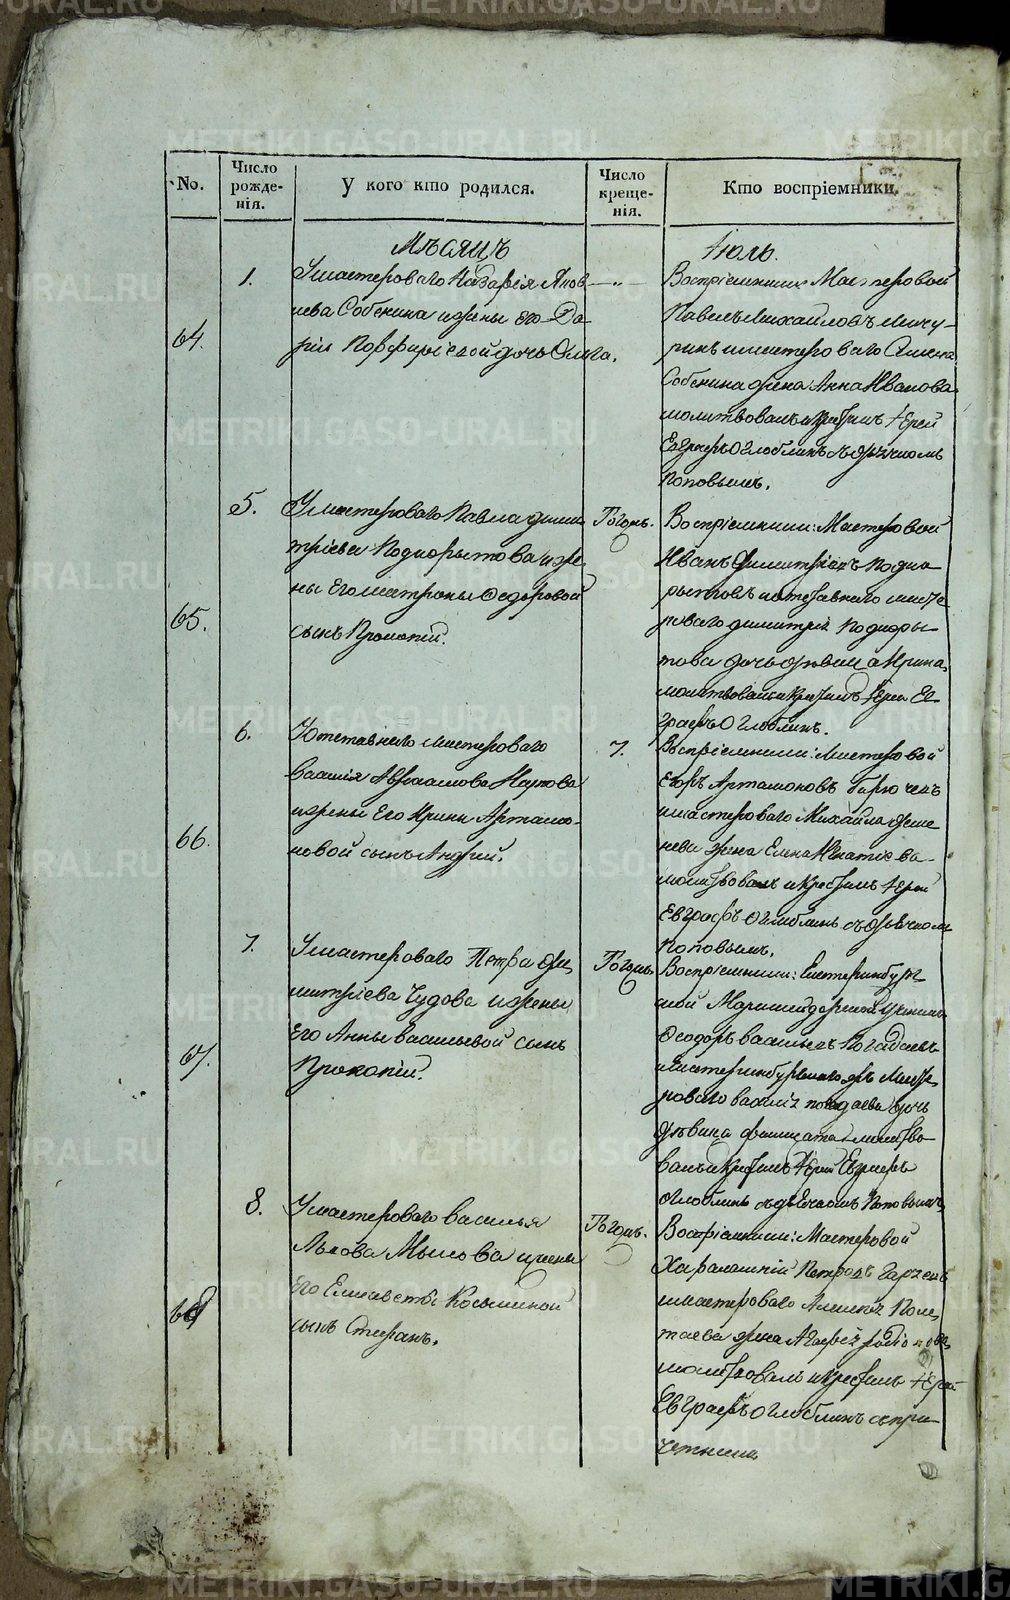 No.
Число рожде-нія.
У кого кто родился.
Число креще-нія.
Кто воспріемники.
Мѣсяцъ
Іюль.
64.
1.
У мастероваго Назарія Яков
лева Собенина и жены его Да
ріи Порфирьевой дочь Олга.
— „ —
Воспріемники Мастеровой
Павелъ Михайловъ Мичу-
ринъ и мастероваго
Собенина жена Анна Иванова
молитвовалъ и крестилъ Іерей
Евграфъ Оглоблинъ съ дьячкомъ
Поповымъ.
65.
5.
У мастероваго Павла Дими
тріева Подкорытова и же
ны его Матроны Ѳедоровой
сынъ Прокопій.
Тогожъ.
Воспріемники: Мастеровой
Иванъ Димитріевъ Подко
рытовъ и отставнаго масте
роваго Димитрія Подкоры
това дочь девица Ирина,
молитвовалъ и крестилъ Іерей Ев
графъ Оглоблинъ.
66.
6.
У отставнаго мастероваго
Василія Авраамова
и жены его Ирины Артамо
новой сынъ Андрей.
7.
Воспріемники: Мастеровой
Егоръ Артамоновъ
и мастероваго Михайла
жена Елена Игнатіева
молитвовалъ и крестилъ Іерей
Евграфъ Оглоблинъ съ дьячкомъ
Поповымъ.
67.
7.
У мастероваго Петра Ди
митріева Чудова и жены
его Анны Васильевой сынъ
Прокопій.
Тогожъ
Воспріемники: Екатеринбург
ской
Ѳеодоръ Васильевъ Погадаевъ
и Екатеринбургскаго масте
роваго Василія Погадаева дочь
дѣвица молитво
валъ и крестилъ Іерей Евграфъ
Оглоблинъ съ дьячкомъ Поповымъ
68
8.
У мастероваго Василья
Львова Мылова и жены
его Елисаветы Космииной
сынъ Стефанъ.
Тогожъ.
Воспріемники: Мастеровой
Харалампій Петровъ
и мастероваго Алексея Поле
таева жена Агафія Родіонова
молитвовалъ и крестилъ Іерей
Евграфъ Оглоблинъ съ при
четники
METRIKI.GASO-URAL.RU